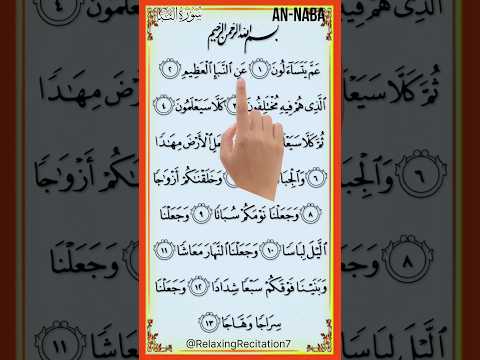 سُورَةُ النَّبَإِ AN-NABA
بسم الله الرحمن الرحيم
عَمَّ يَتَسَآءَلُونَ ١ عَنِ ٱلنَّبَإِ ٱلْعَظِيمِ ٢
ٱلَّذِى هُمْ فِيهِ مُخْتَلِفُونَ ٣ كَلَّا سَيَعْلَمُونَ ٤
ثُمَّ كَلَّا ٱلْأَرْضَ مِهَٰدًا
٦ وَخَلَقْنَٰكُمْ أَزْوَٰجًا
٨ وَجَعَلْنَا نَوْمَكُمْ سُبَاتًا ٩ وَجَعَلْنَا
ٱلَّيْلَ لِبَاسًا ١٠ وَجَعَلْنَا ٱلنَّهَارَ مَعَاشًا ١١
وَبَنَيْنَا فَوْقَكُمْ سَبْعًا شِدَادًا ١٢ وَجَعَلْنَا
سِرَاجًا وَهَّاجًا ١٣
@RelaxingRecitation7